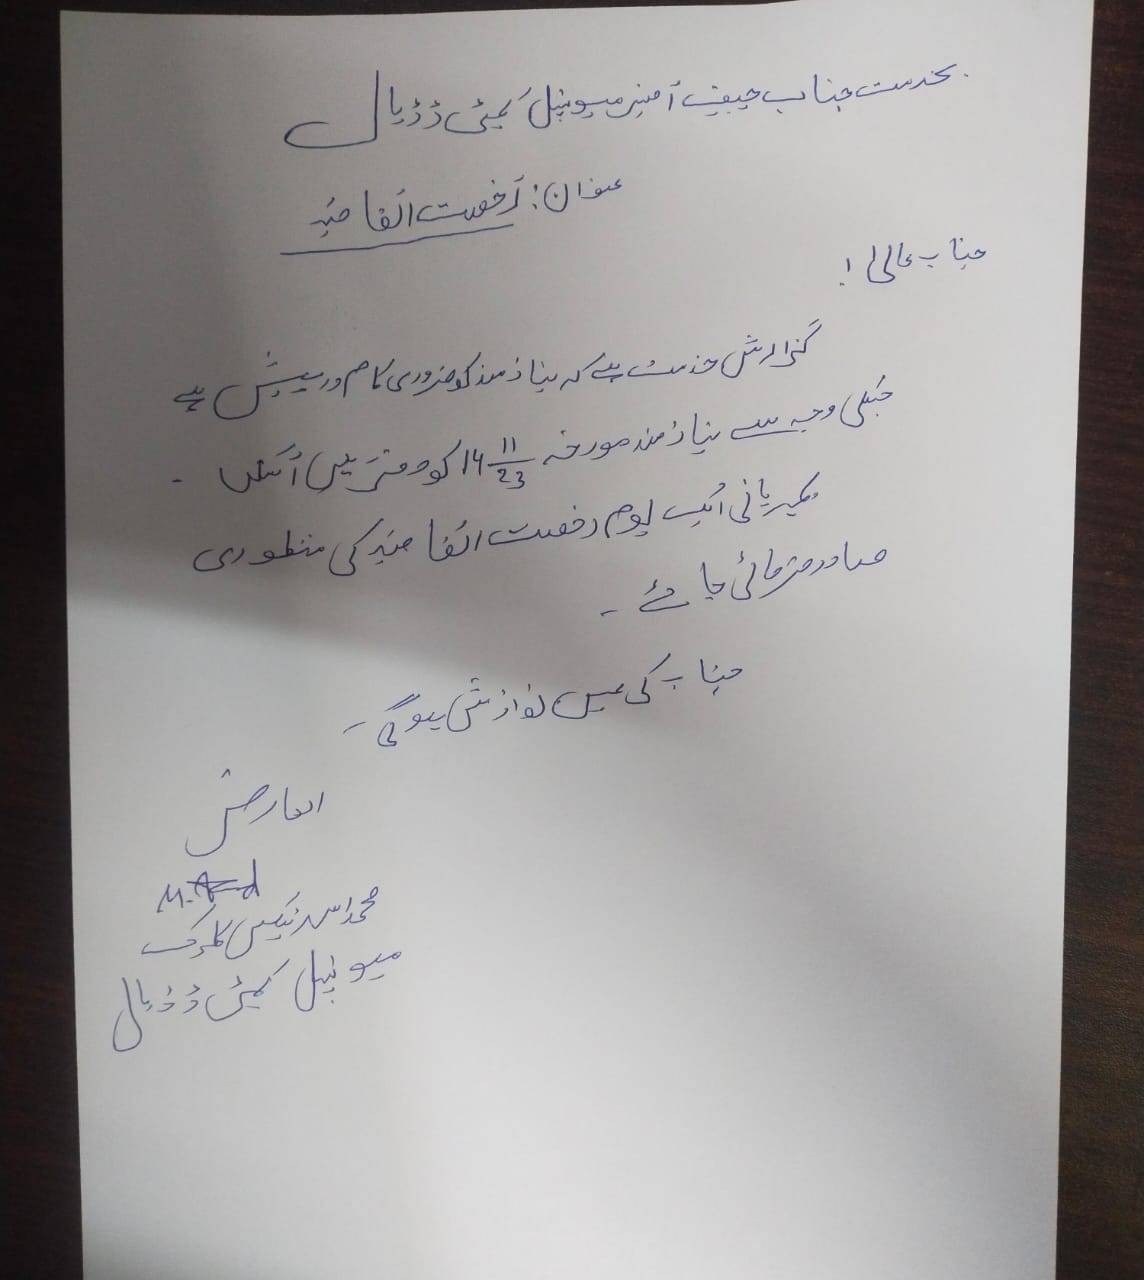 بخدمت جناب چیف آفیسر میونسپل کمیٹی ڈڈیال
عنوان: رخصت اتفاقیہ
جناب عالی!
گزارش خدمت ہے کہ نیاز مند کو ضروری کام درپیش ہے
جسکی وجہ سے نیاز مند مورخہ 14 11/23 کو دفتر نہیں آ سکتا۔
مہربانی ایک یوم رخصت اتفاقیہ کی منظوری
صادر فرمائی جائے۔
جناب کی عین نوازش ہوگی۔
العارض
محمد اسد ٹیکس کلرک
میونسپل کمیٹی ڈڈیال